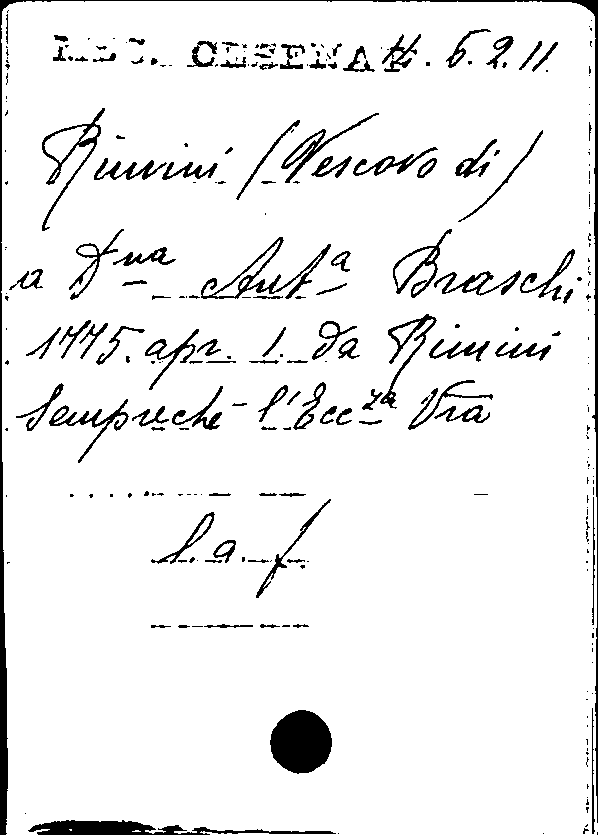 LEG. CESENAT. 5.2.11
Rimini (Vescovo di)
a Dna Anta Braschi
1775. apr. 1. Da Rimini
Sempreché l'Eccza Vra
l. a. f.